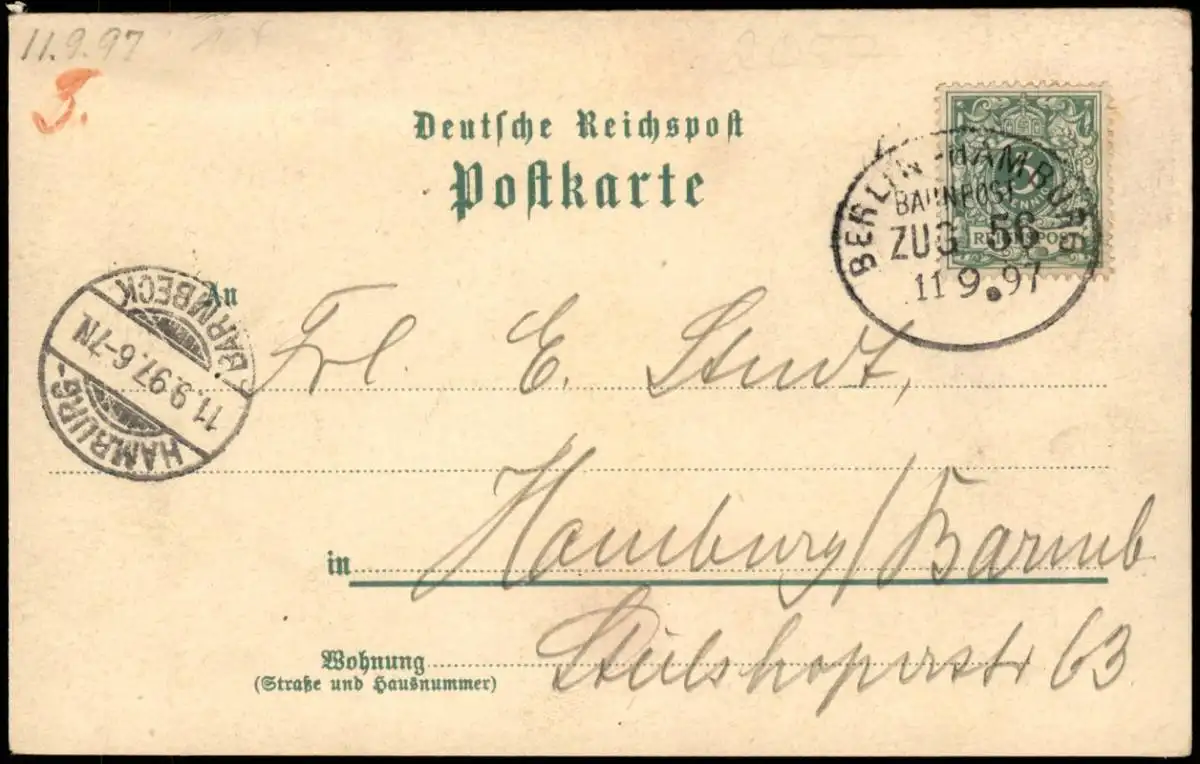 11.9.97
J.
Deutsche Reichspost
Postkarte
BERLIN-HAMBURG
BAHNPOST
ZUG 56
11 9.97
5
REICHSPOST
An
Frl. E. Studt,
HAMBURG-
11.9.97.6-7N
BARMBECK
in Hamburg/Barmb
Wohnung
(Straße und Hausnummer)
63